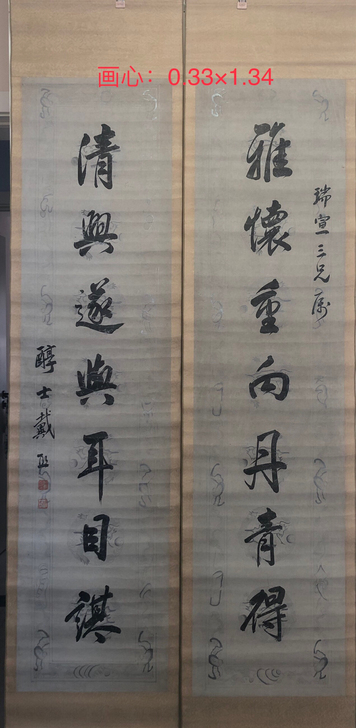 画心：0.33×1.34
瑞宣三兄属
雅懷重向丹青得
清興遂與耳目謀
醇士戴熙